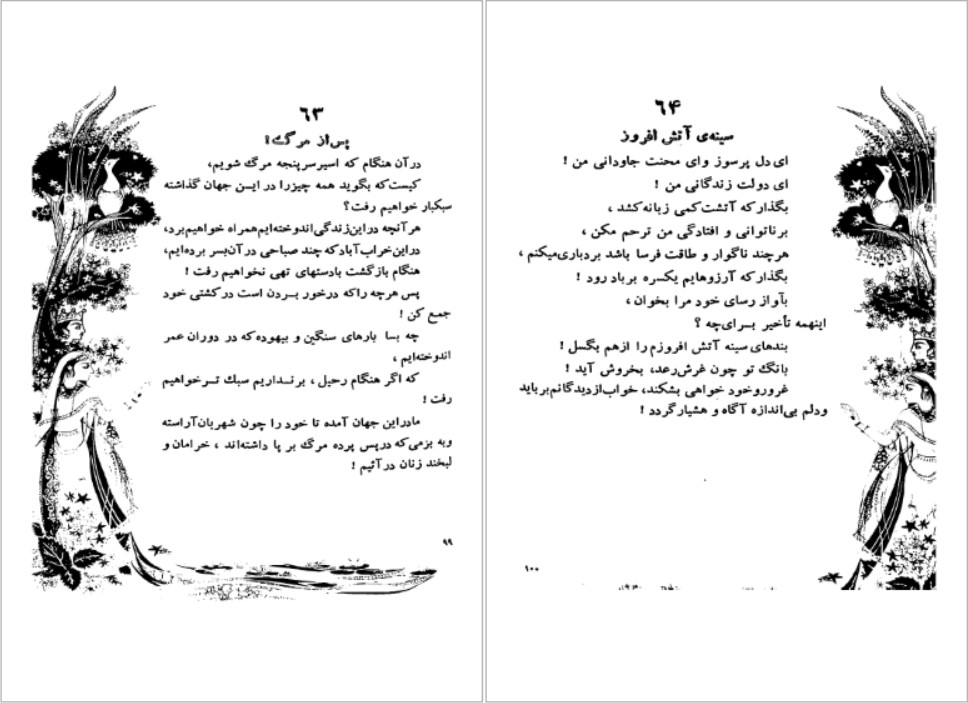 ۶۳
پس از مرگ!
در آن هنگام که اسیر سر پنجه مرگ شویم،
کیست که بگوید همه چیز را در این جهان گذاشته
سبکبار خواهیم رفت؟
هر آنچه در این زندگی اندوخته‌ایم همراه خواهیم برد،
در این خراب آباد که چند صباحی در آن بسر برده‌ایم،
هنگام بازگشت با دستهای تهی نخواهیم رفت!
پس هر چه را که در خور بردن است در کشتی خود
جمع کن!
چه بسا بارهای سنگین و بیهوده که در دوران عمر
اندوخته‌ایم،
که اگر هنگام رحیل، بر نداریم سبک تر خواهیم
رفت!
ما در این جهان آمده تا خود را چون شهربان آراسته
و به بزمی که در پس پرده مرگ بر پا داشته‌اند، خرامان و
لبخند زنان در آئیم!
۹۹
۶۴
سینه‌ی آتش افروز
ای دل پرسوز و ای محنت جاودانی من!
ای دولت زندگانی من!
بگذار که آتشت کمی زبانه کشد،
بر ناتوانی و افتادگی من ترحم مکن،
هر چند ناگوار و طاقت فرسا باشد بردباری میکنم،
بگذار که آرزوهایم یکسره بر باد رود!
بآواز رسای خود مرا بخوان،
اینهمه تأخیر برای چه؟
بندهای سینه آتش افروزم را از هم بگسل!
بانگ تو چون غرش رعد، بخروش آید!
غرور و خود خواهی بشکند، خواب از دیدگانم بر باید
و دلم بی‌اندازه آگاه و هشیار گردد!
۱۰۰